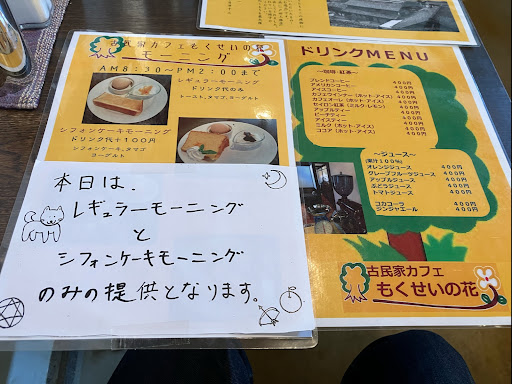 古民家カフェもくせいの花
モーニング
AM8:30~PM2:00まで
レギュラーモーニング
ドリンク代のみ
トースト、タマゴ、ヨーグルト
シフォンケーキモーニング
ドリンク代+100円
シフォンケーキ、タマゴ
ヨーグルト
本日は、
レギュラーモーニング
と
シフォンケーキモーニング
のみの提供となります。
ドリンクMENU
~珈琲・紅茶~
ブレンドコーヒー 400円
アメリカンコーヒー 400円
アイスコーヒー 400円
カフェウインナー(ホット・アイス) 400円
カフェオーレ(ホット・アイス) 400円
セイロン紅茶(ミルク・レモン) 400円
アップルティー 400円
ピーチティー 400円
アイスティー 400円
ミルク(ホット・アイス) 400円
ココア(ホット・アイス) 400円
~ジュース~
(果汁100%)
オレンジジュース 400円
グレープフルーツジュース 400円
アップルジュース 400円
ぶどうジュース 400円
トマトジュース 400円
コカコーラ 400円
ジンジャエール 400円
古民家カフェ
もくせいの花